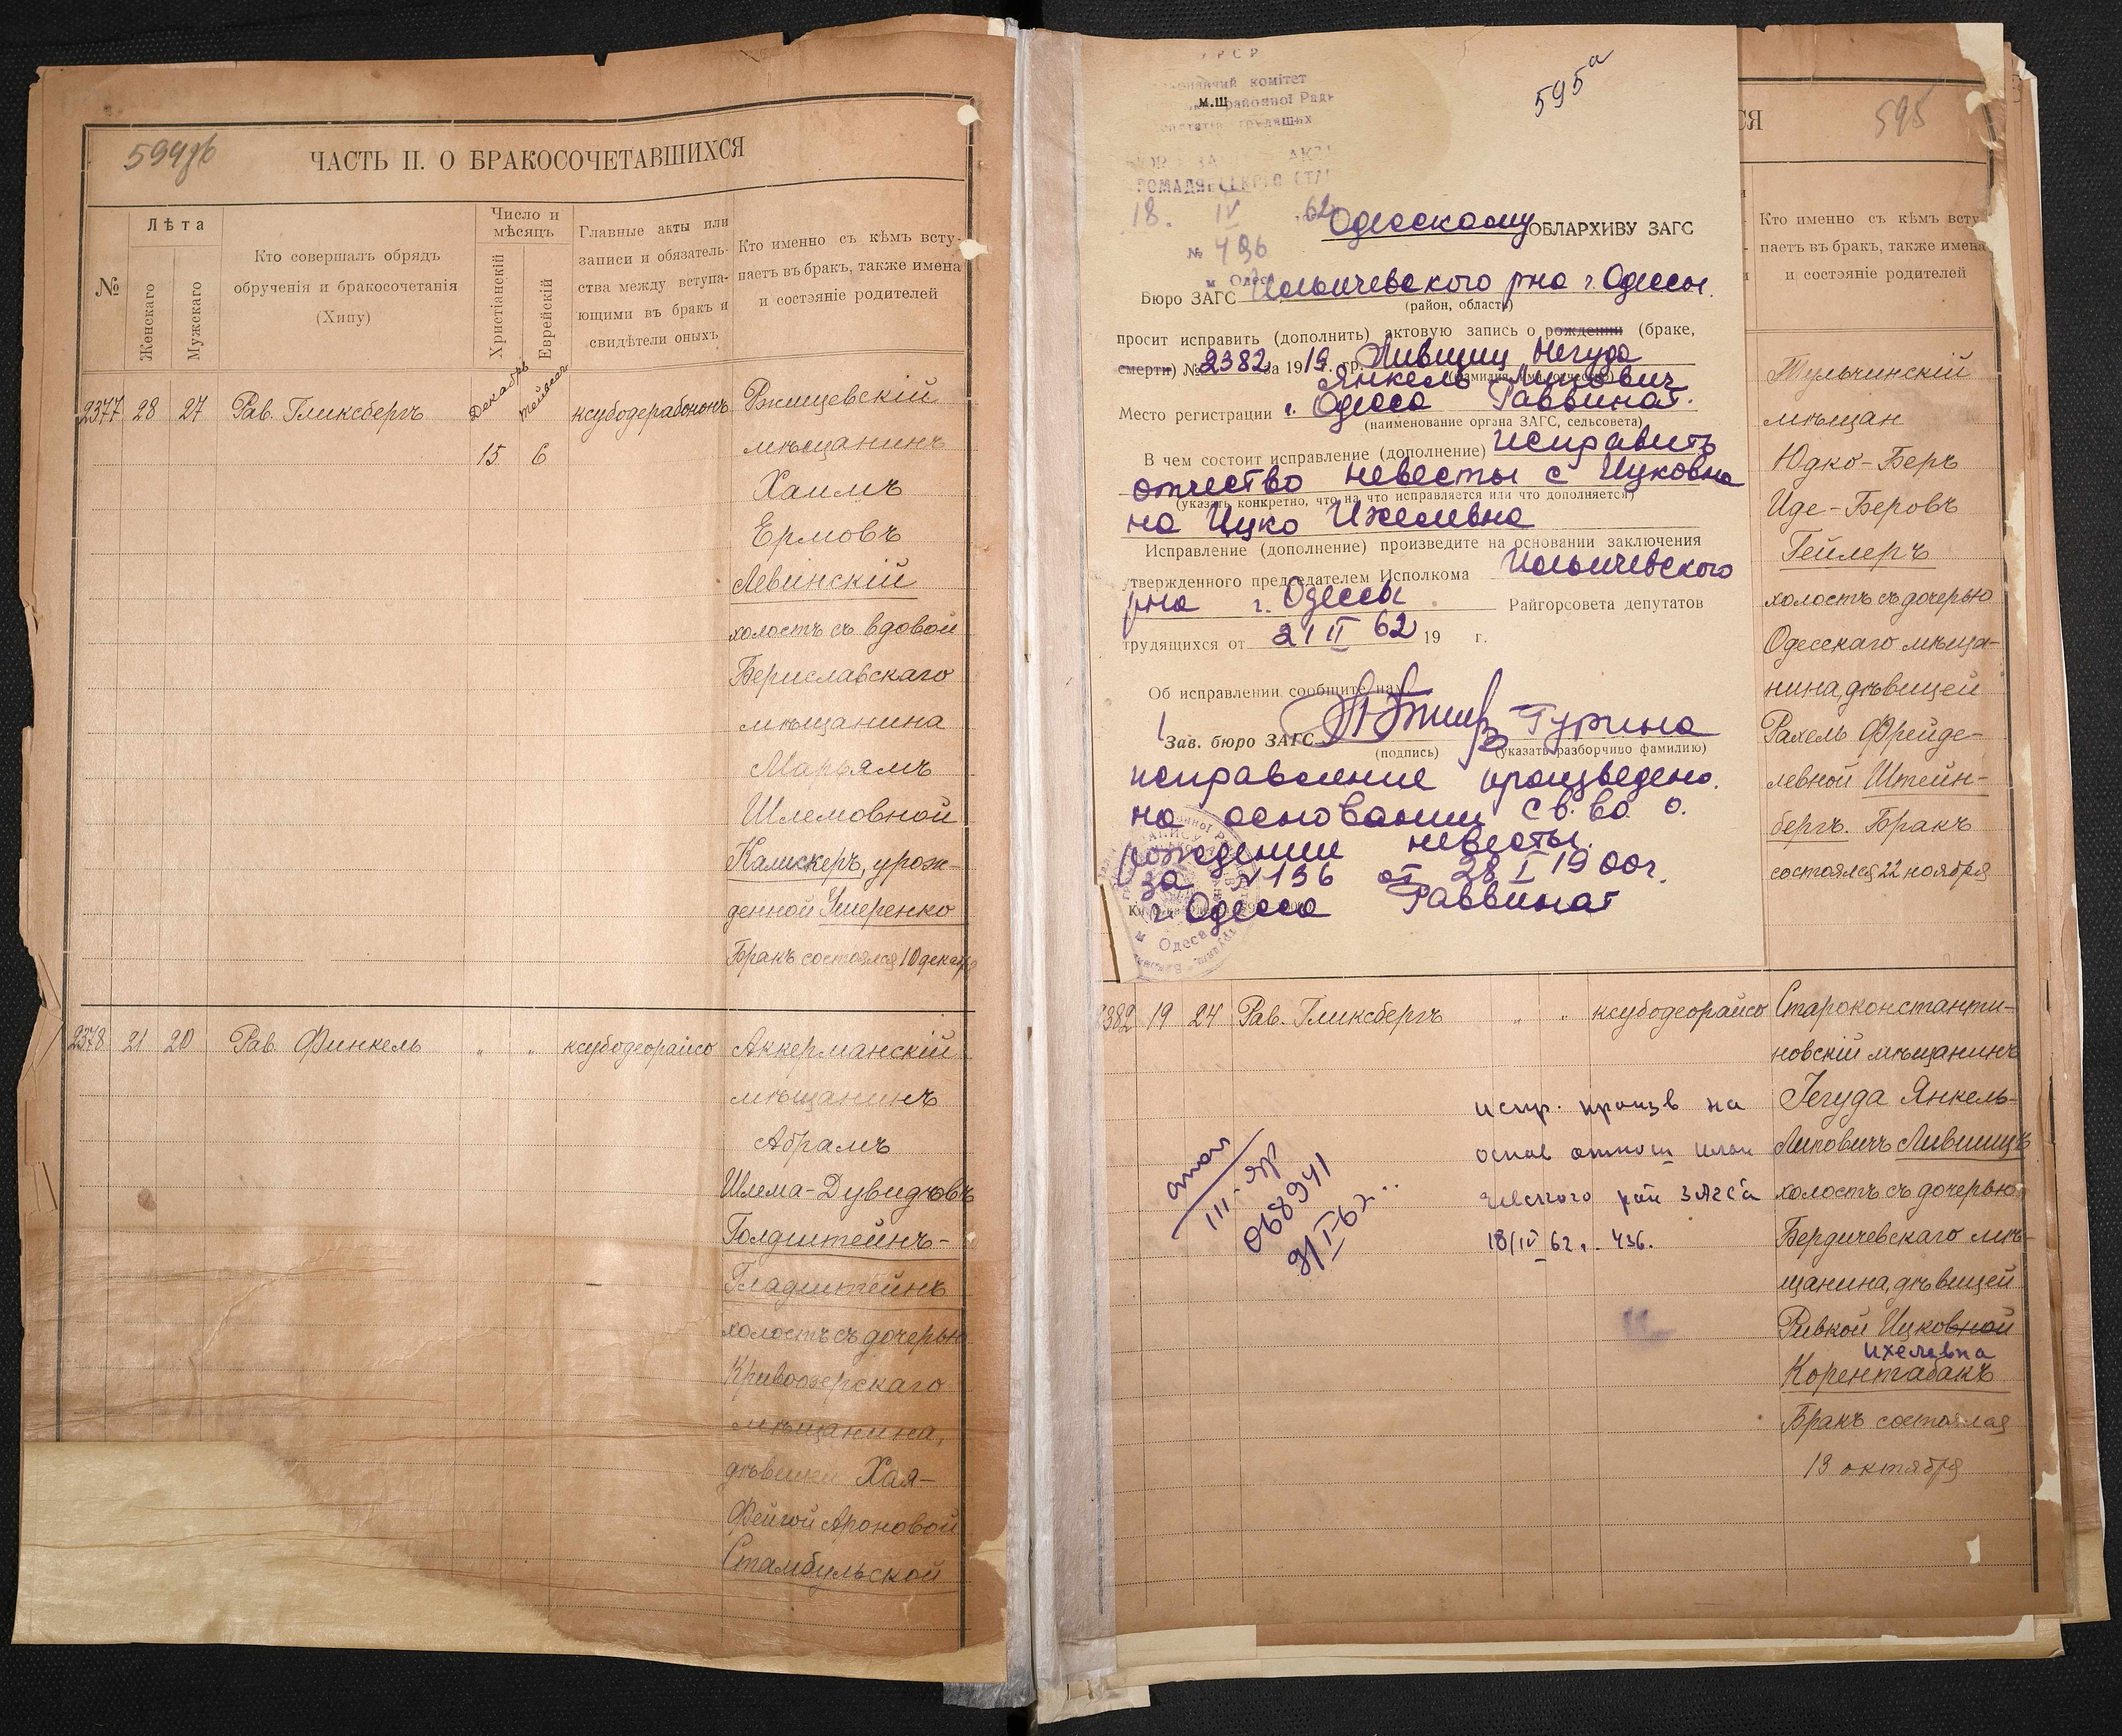 594об
ЧАСТЬ II. О БРАКОСОЧЕТАВШИХСЯ
№
Лѣта
Женскаго
Мужскаго
Кто совершалъ обрядъ
обрученія и бракосочетанія
(Хипу)
Число и
мѣсяцъ
Христіанскій
Еврейскій
Главные акты или
записи и обязатель-
ства между вступа-
ющими въ бракъ и
свидѣтели оныхъ
Кто именно съ кѣмъ всту-
паетъ въ бракъ, также имена
и состэяніе родителей
2377 28 27 Рав. Гликсбергъ
Декабрь
15 6
ксубодерабононъ
Ржищевскій
мѣщанинъ
Хаимъ
Ермовъ
Левинскій
холостъ съ вдовой
Бериславскаго
мѣщанина
Марьямъ
Шлемовной
Калискеръ, урож-
денной Умеренко
Бракъ состоялся 10 декабря
2378 21 20 Рав. Финкель " " ксубодеорайсо
Аккерманскій
мѣщанинъ
Абрамъ
Шлема-Дувидовъ
Голдштейнъ-
Гладштейнъ
холостъ съ дочерью
Кривоозерскаго
мѣщанина,
дѣвицей Хая-
Фейгой Ароновой
Стамбульской
РСР
комітет
районної Ради
трудящих
м.Ш
ГОМАДЯНСЬКОГО СТАНУ
18. IV 62
№ 436
м. Одеса
595а
Одесскому ОБЛАРХИВУ ЗАГС
Бюро ЗАГС Ильичевского рна г. Одессы.
(район, область)
просит исправить (дополнить) актовую запись о рождении (браке,
смерти) № 2382 за 1919 гр. Лившиц Иегуда
(фамилия, имя, отчество)
Янкель Липович
Место регистрации г. Одесса Раввинат.
(наименование органа ЗАГС, сельсовета)
В чем состоит исправление (дополнение) исправить
отчество невесты с Ицковна
(указать конкретно, что на что исправляется или что дополняется)
на Ицко Ихелевна
Исправление (дополнение) произведите на основании заключения
утвержденного председателем Исполкома Ильичевского
рна г. Одессы Райгорсовета депутатов
трудящихся от 21 II 62 19 г.
Об исправлении сообщите нам.
Зав. бюро ЗАГС Гурина
(подпись) (указать разборчиво фамилию)
исправление произведено.
на основании св. во о.
рождении невесты.
за N 136 от 28 I 1900г.
г. Одесса Раввинат
Одеса
СЯ
595
Кто именно съ кѣмъ всту-
паетъ въ бракъ, также имена
и состэяніе родителей
Тульчинскій
мѣщан
Юдко-Беръ
Иде-Беровъ
Гейлеръ
холостъ съ дочерью
Одесскаго мѣща-
нина, дѣвицей
Рахель Фрейде-
левной Штейн-
бергъ. Бракъ
состоялся 22 ноября
2382 19 24 Рав. Гликсбергъ " " ксубодеорайсо
Староконстанти-
новскій мѣщанинъ
Іегуда Янкель-
Липовичъ Лившицъ
холостъ съ дочерью
Бердичевскаго мѣ-
щанина, дѣвицей
Ривкой Ицковной
Ихелевна
Корентабакъ
Бракъ состоялся
13 октября
испр. произв на
основ отнош Ильи
чевского рай ЗАГСа
18/IV 62 г. 436.
III-яр
068941